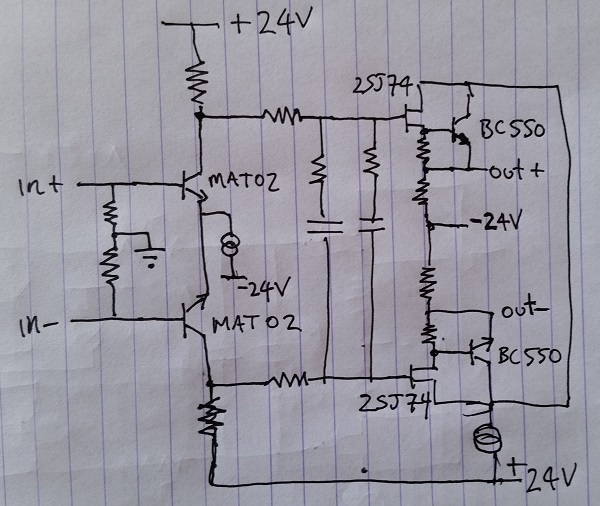 +24V
2SJ74
BC550
In+
MAT02
out+
-24V
-24V
out-
In-
MAT02
BC550
2SJ74
+
24V